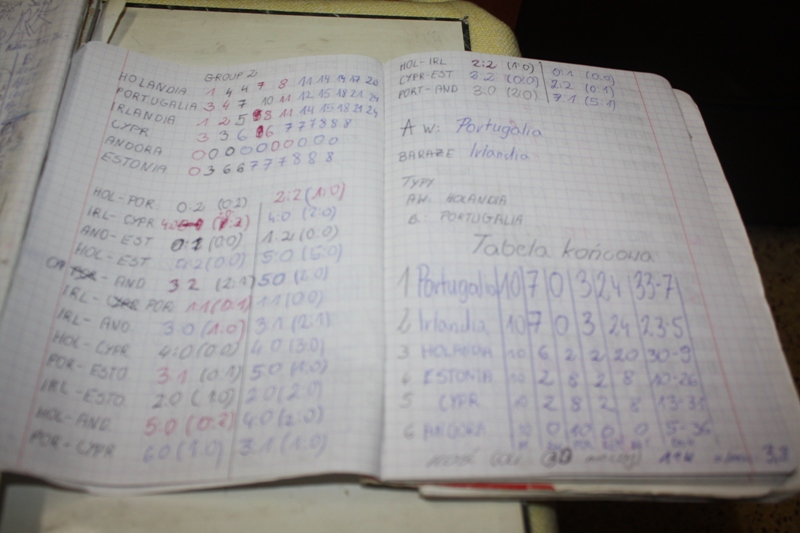 GROUP 2
HOLANDIA 1 4 4 7 8 11 14 14 17 20
PORTUGALIA 3 4 7 10 11 12 15 18 21 24
IRLANDIA 1 2 5 8 11 14 15 18 21 24
CYPR 3 3 6 6 7 7 7 8 8 8
ANDORA 0 0 0 0 0 0 0 0 0 0
ESTONIA 0 3 6 6 7 7 7 8 8 8
HOL-POR 0:2 (0:2) 2:2 (1:0)
IRL-CYPR 4:0 (2:0)
AND-EST 0:1 (0:0) 1:2 (0:0)
HOL-EST (0:0) 5:0 (5:0)
AND 3 2 (2:1) 5:0 (2:0)
IRL- POR 1 1 (0:1) 1 1 (0:0)
IRL-AND 3:0 (1:0) 3:1 (2:1)
HOL-CYPR 4:0 (0:0) 4:0 (3:0)
POR-ESTO 3 1 (0:1) 5:0 (1:0)
IRL-ESTO 2:0 (1:0) 2:0 (2:0)
HOL-AND 5:0 (0:2) 4:0 (2:0)
POR-CYPR 6:0 (1:0) 3:1 (1:0)
HOL-IRL 2:2 (1:0) 0:1 (0:0)
CYPR-EST 2:2 (0:0) 2:2 (0:1)
PORT-AND 3:0 (2:0) 7:1 (5:1)
AW: Portugalia
BARAŻE Irlandia
TYPY
AW: HOLANDIA
B: PORTUGALIA
Tabela końcowa
1 Portugalia 10 7 0 3 24 33-7
2 Irlandia 10 7 0 3 24 23-5
3 HOLANDIA 10 6 2 2 20 30-9
4 ESTONIA 10 2 8 2 8 10-26
5 CYPR 10 2 8 2 8 13-31
6 ANDORA 10 0 10 0 0 5-36
3,8